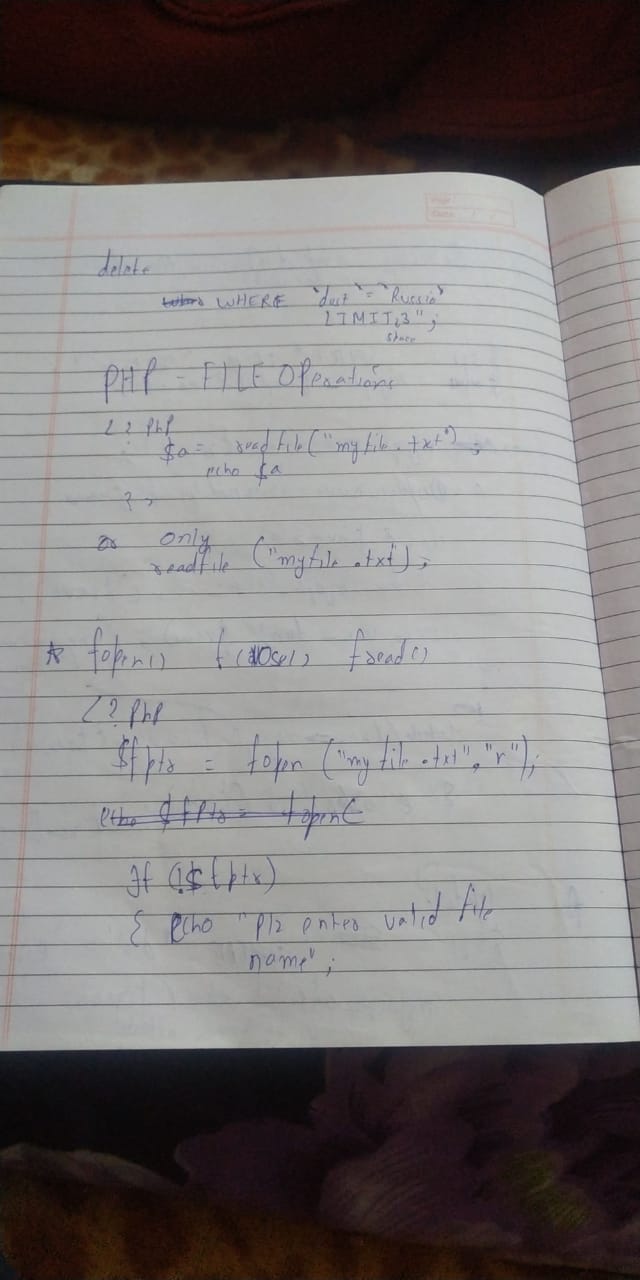 delete
WHERE `dest` = 'Russia'
LIMIT 3";
space
PHP - FILE Operations
<? PHP
$a = readfile("myfile.txt");
echo $a
? >
or only
readfile ("myfile.txt");
* fopen() fclose() fread()
<? PHP
$fptr = fopen ("myfile.txt", "r");
echo $fptr = fopen(
If (!$fptr)
{ echo "plz enter valid file
name";